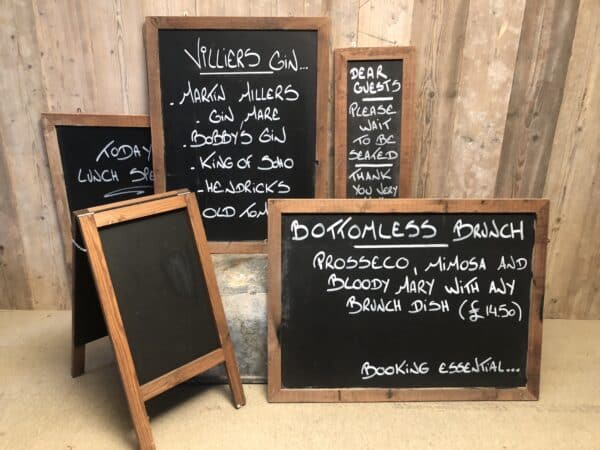 VILLIERS GIN...
. MARTIN MILLERS
. GIN MARE
. BOBBYS GIN
. KING OF SOHO
. HENDRICKS
OLD TOM
DEAR
GUESTS
PLEASE
WAIT
TO BE
SEATED
THANK
YOU VERY
TODAY
LUNCH SPE
BOTTOMLESS BRUNCH
PROSSECO, MIMOSA AND
BLOODY MARY WITH ANY
BRUNCH DISH (£14.50)
BOOKING ESSENTIAL...